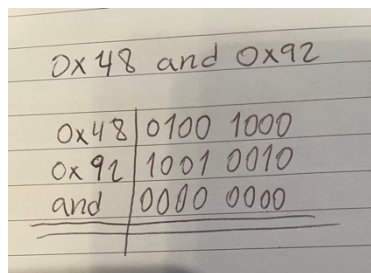 0x48 and 0x92
0x48 0100 1000
0x92 1001 0010
and 0000 0000